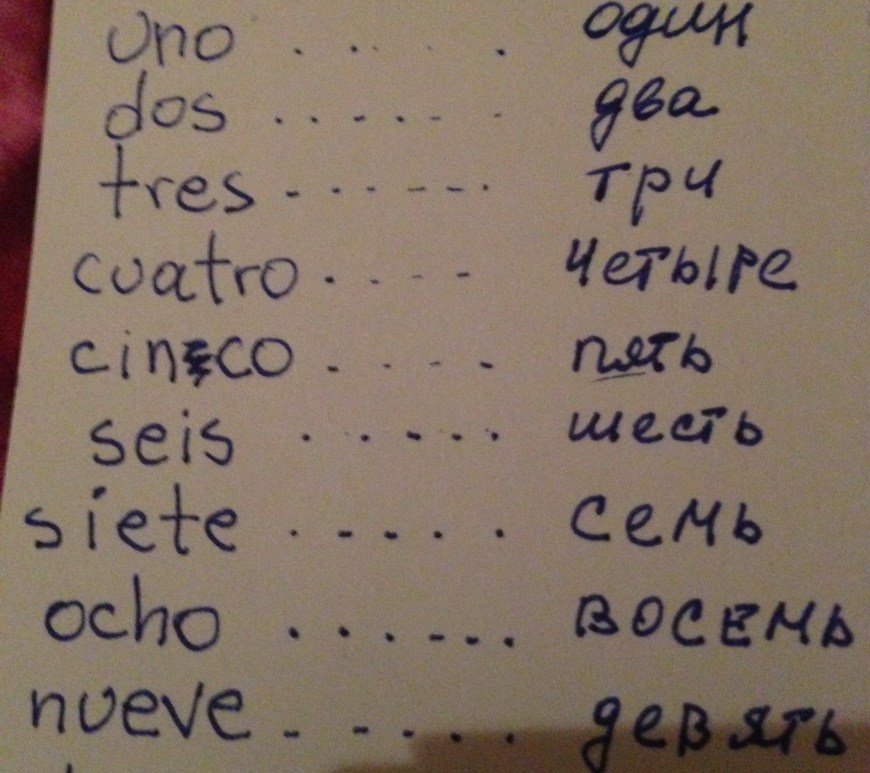 uno . . . . . один
dos . . . . . . два
tres . . . . . . . три
cuatro . . . . четыре
cinco . . . . пять
seis . . . . . . шесть
siete . . . . . семь
ocho . . . . . . . восемь
nueve . . . . . девять